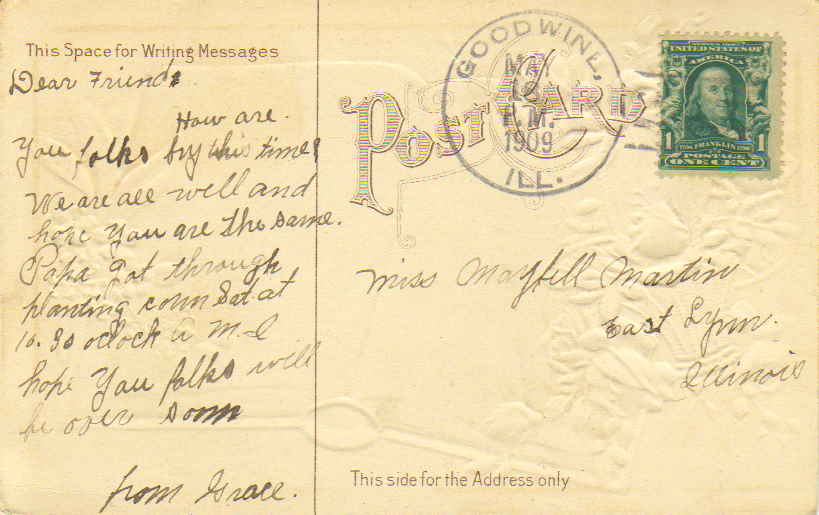 This Space for Writing Messages
Dear Friend
How are
You folks by this time?
We are all well and
hope you are the same.
Papa got through
planting corn Sat at
10.30 oclock A M-I
hope You folks will
be over soon
from Grace.
POST CARD
GOODWINE,
MAY
P.M.
1909
ILL.
UNITED STATES OF
AMERICA
1 1
POSTAGE
ONE CENT
Miss Maybell Martin
East Lynn.
Illinois
This side for the Address only